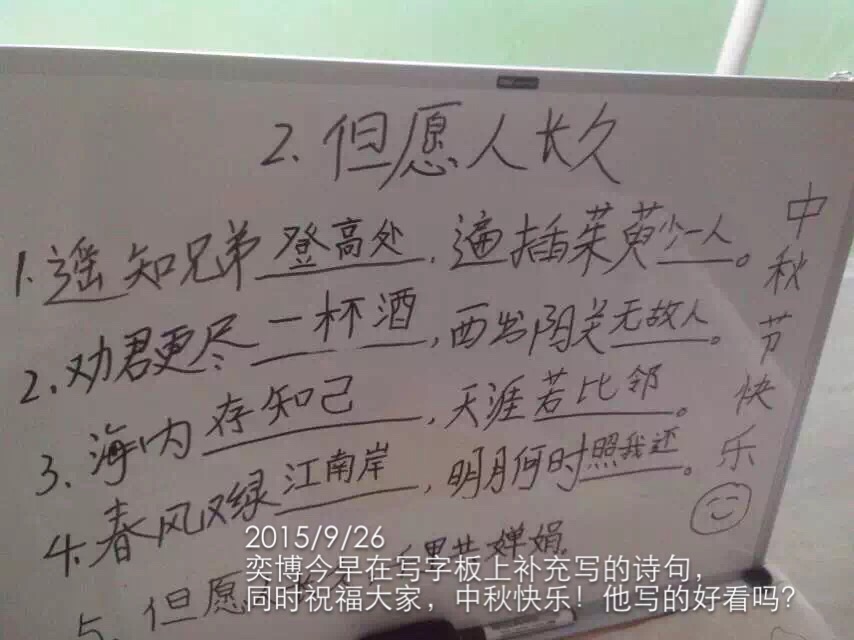 2.但愿人长久
1.遥知兄弟登高处,遍插茱萸少一人。
2.劝君更尽一杯酒,西出阳关无故人。
3、海内存知己,天涯若比邻。
4.春风又绿江南岸,明月何时照我还。
5、但愿 婵娟.
中秋节快乐
2015/9/26
奕博今早在写字板上补充写的诗句,
同时祝福大家,中秋快乐!他写的好看吗?